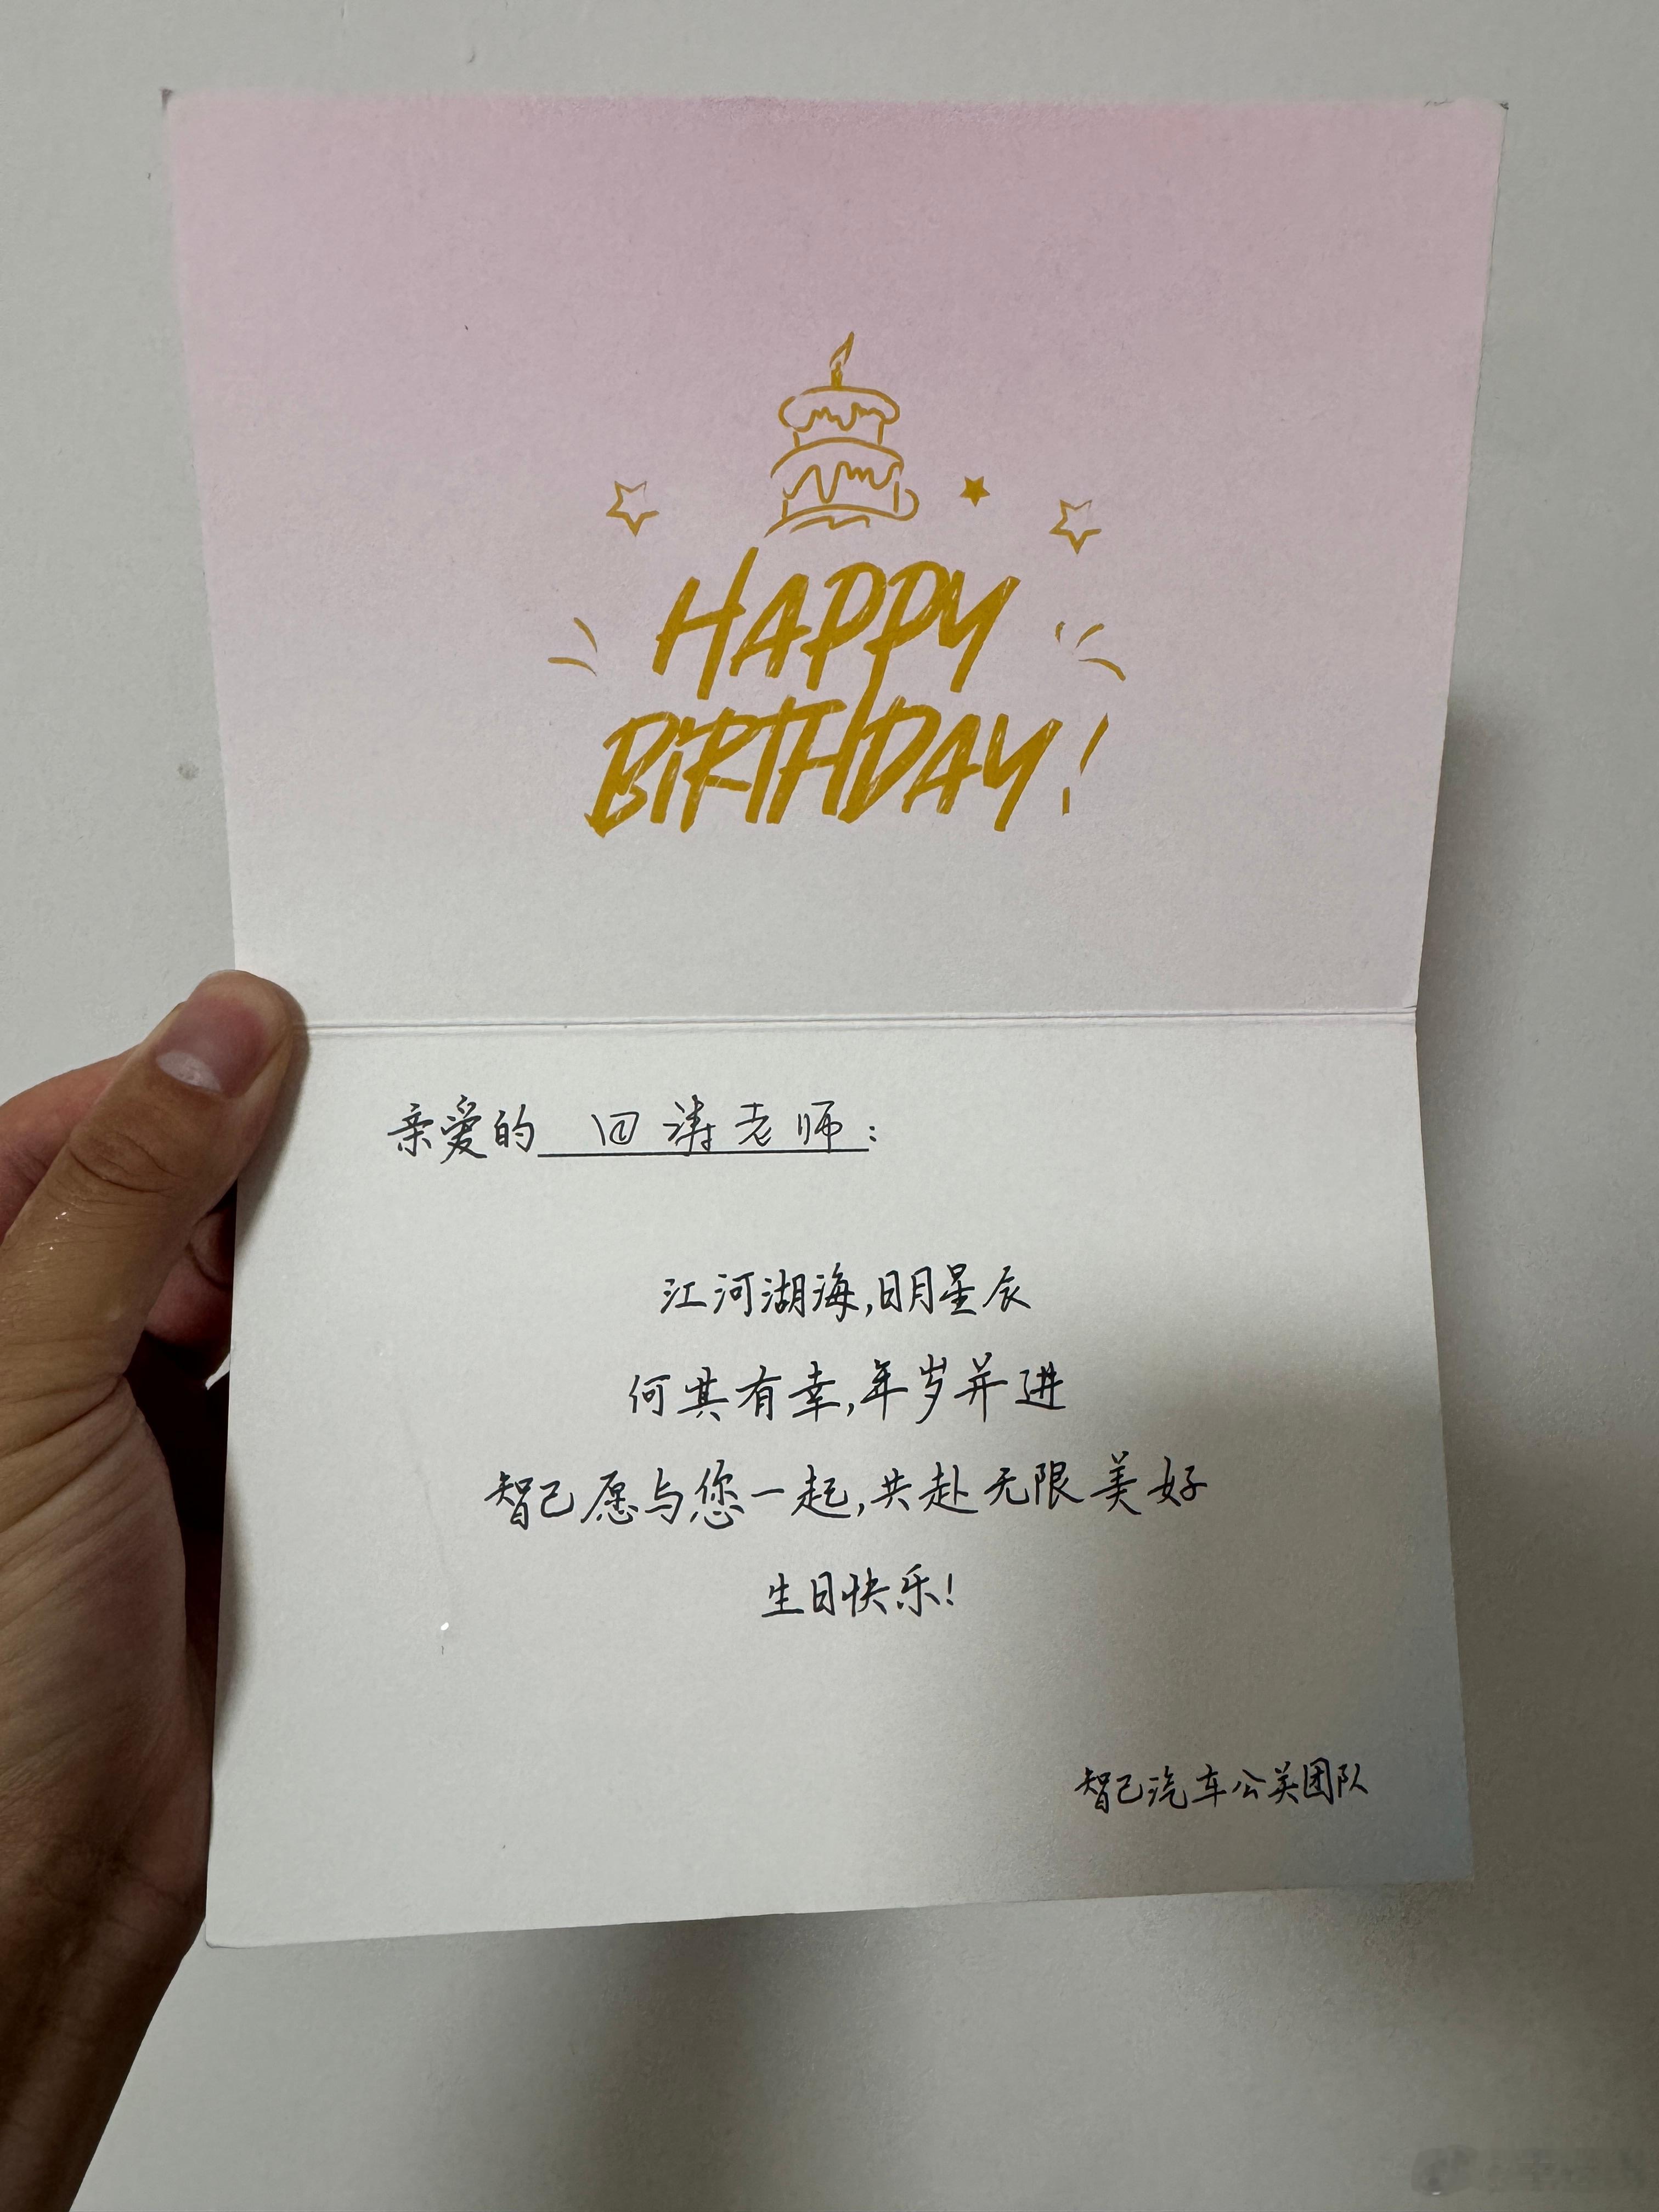 HAPPY
BIRTHDAY!
亲爱的 回涛老师:
江河湖海,日月星辰
何其有幸,年岁并进
智己愿与您一起,共赴无限美好
生日快乐!
智己汽车公关团队